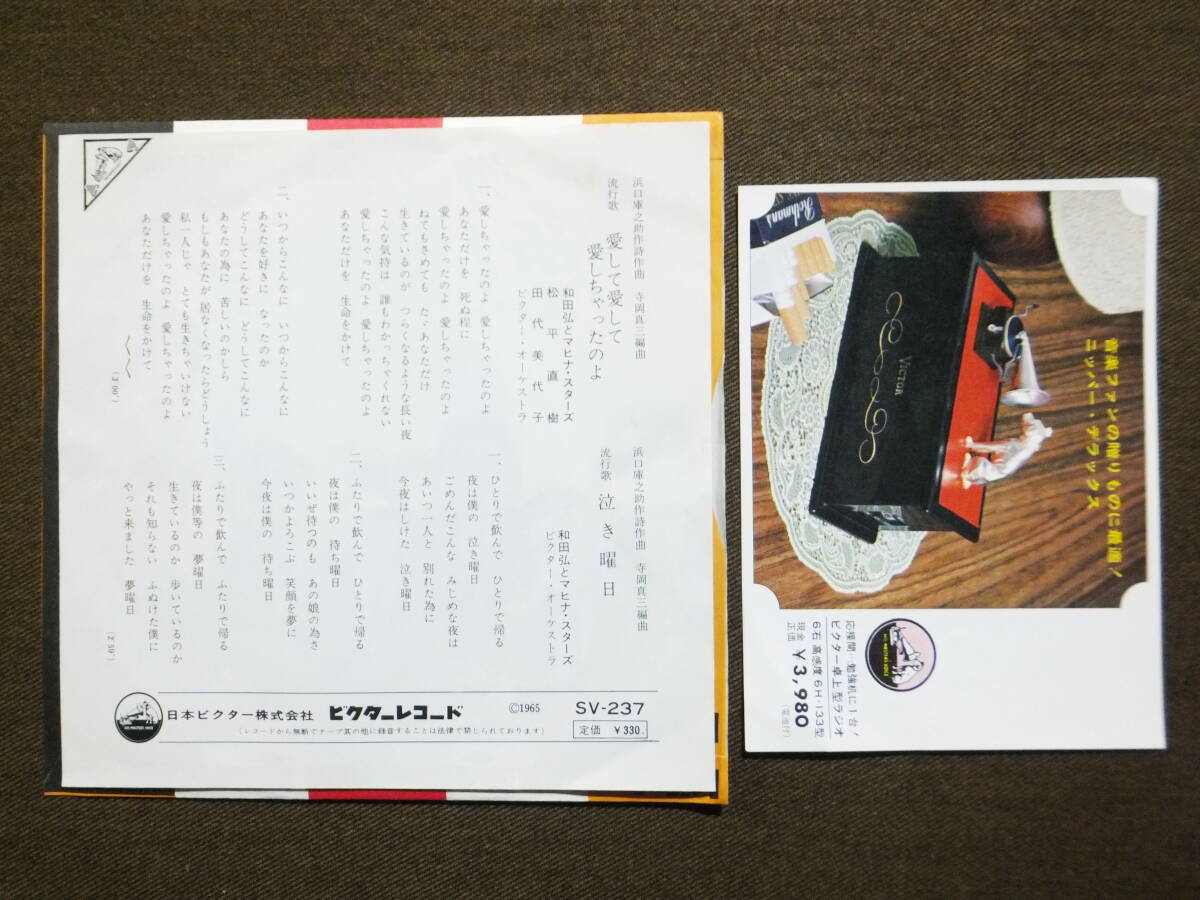 浜口庫之助作詩作曲 寺岡真三編曲
流行歌 愛して愛して
愛しちゃったのよ
和田弘とマヒナ・スターズ
松平直樹
田代美代子
ビクター・オーケストラ
一、愛しちゃったのよ 愛しちゃったのよ
あなただけを 死ぬ程に
愛しちゃったのよ 愛しちゃったのよ
ねてもさめても たゞあなただけ
生きているのが つらくなるような長い夜
こんな気持は 誰もわかっちゃくれない
愛しちゃったのよ 愛しちゃったのよ
あなただけを 生命をかけて
二、いつからこんなに いつからこんなに
あなたを好きに なったのか
どうしてこんなに どうしてこんなに
あなたの為に 苦しいのかしら
もしもあなたが 居なくなったらどうしよう
私一人じゃ とても生きちゃいけない
愛しちゃったのよ 愛しちゃったのよ
あなただけを 生命をかけて
(3′00″)
浜口庫之助作詩作曲 寺岡真三編曲
流行歌 泣き曜日
和田弘とマヒナ・スターズ
ビクター・オーケストラ
一、ひとりで飲んで ひとりで帰る
夜は僕の 泣き曜日
ごめんだこんな みじめな夜は
あいつ一人と 別れた為に
今夜はしけた 泣き曜日
二、ふたりで飲んで ひとりで帰る
夜は僕の 待ち曜日
いいぜ待つのも あの娘の為さ
いつかよろこぶ 笑顔を夢に
今夜は僕の 待ち曜日
三、ふたりで飲んで ふたりで帰る
夜は僕等の 夢曜日
生きているのか 歩いているのか
それも知らない ふぬけた僕に
やっと来ました 夢曜日
(2′59″)
日本ビクター株式会社 ビクターレコード Ⓒ1965 SV-237
(レコードから無断でテープ其の他に録音することは法律で禁じられております) 定価 ¥330.
Rothmans
VICTOR
音楽ファンの贈りものに最適!
ニッパー・デラックス
HIS MASTER'S VOICE
応接間・勉強机に1台!
ビクター卓上型ラジオ
6石 高感度 6H-133型
現金正価 ¥3,980 (電池付)